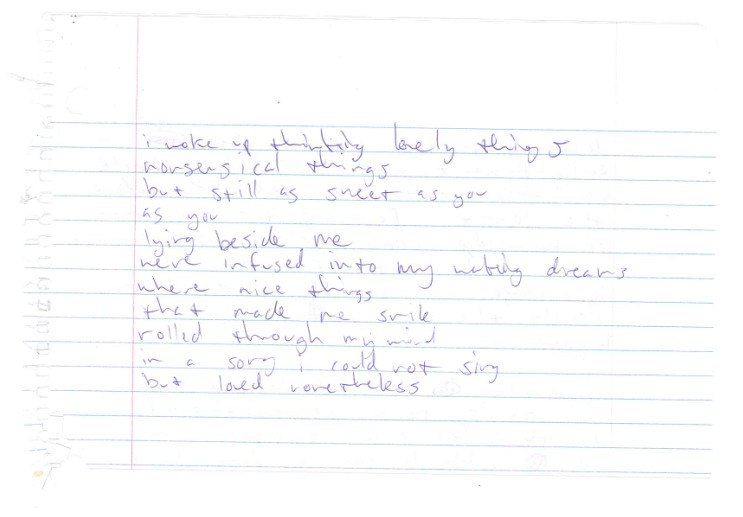 i woke up thinking lovely things
nonsensical things
but still as sweet as you
as you
lying beside me
were infused into my waking dreams
where nice things
that made me smile
rolled through my mind
in a song i could not sing
but loved nonetheless